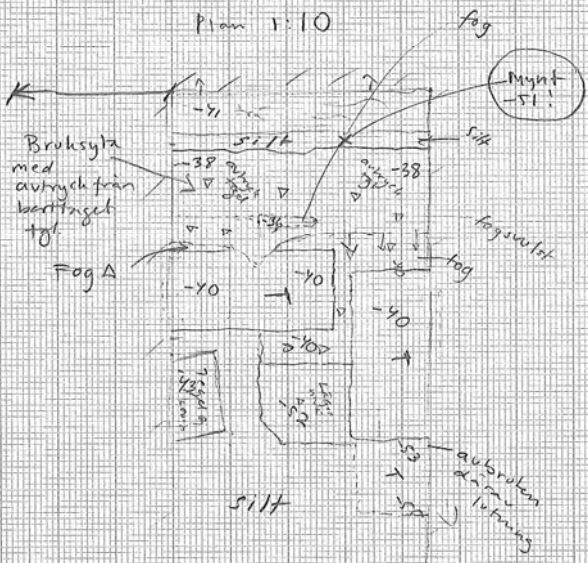 Plan 1:10
fog
Mynt
-51!
-41
silt
silt
Bruksyta
med
avtryck från
borttaget
tgl.
-38
avtryck
tgl
avtryck
tgl
-38
-39
fogsvulst
Fog Δ
fog
-40
T
-40
-40
T
-40
-43
-52
-53
T
-52
avbruten
därav
lutning
silt